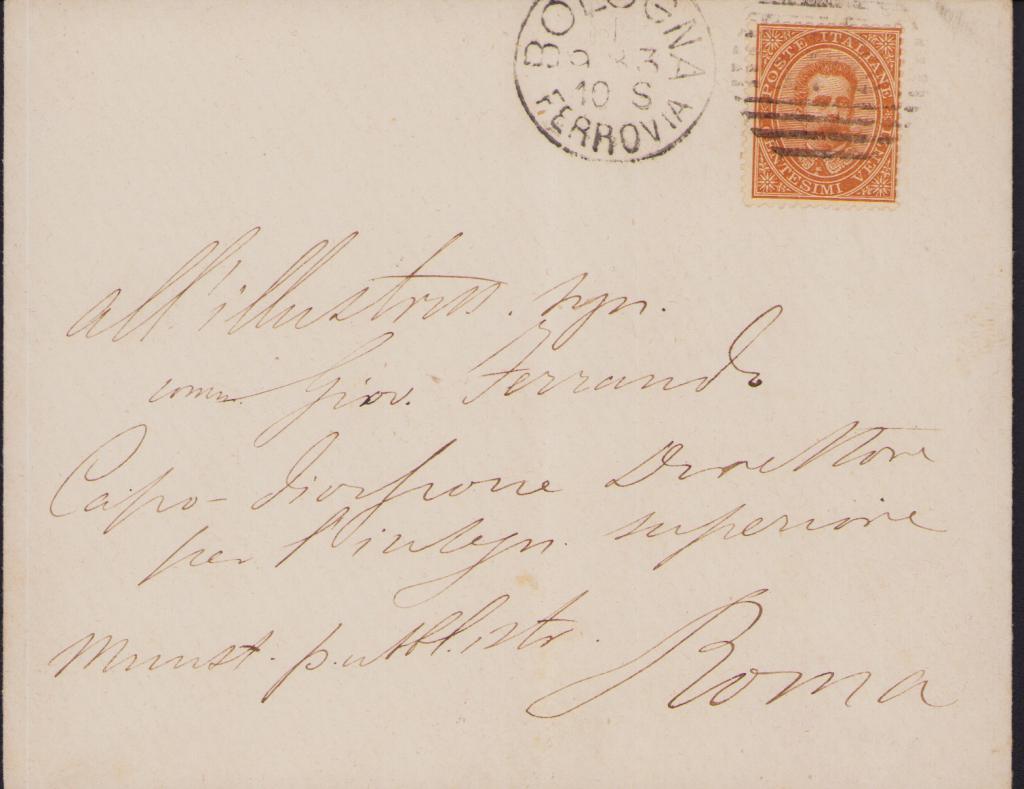 BOLOGNA
10 S
FERROVIA
POSTE ITALIANE
VENTI
all'illustriss. sign.
comm. Giov. Ferrando
Capo-divisione Direttore
per l'insegn. superiore
Minist. pubbl. istr.
Roma